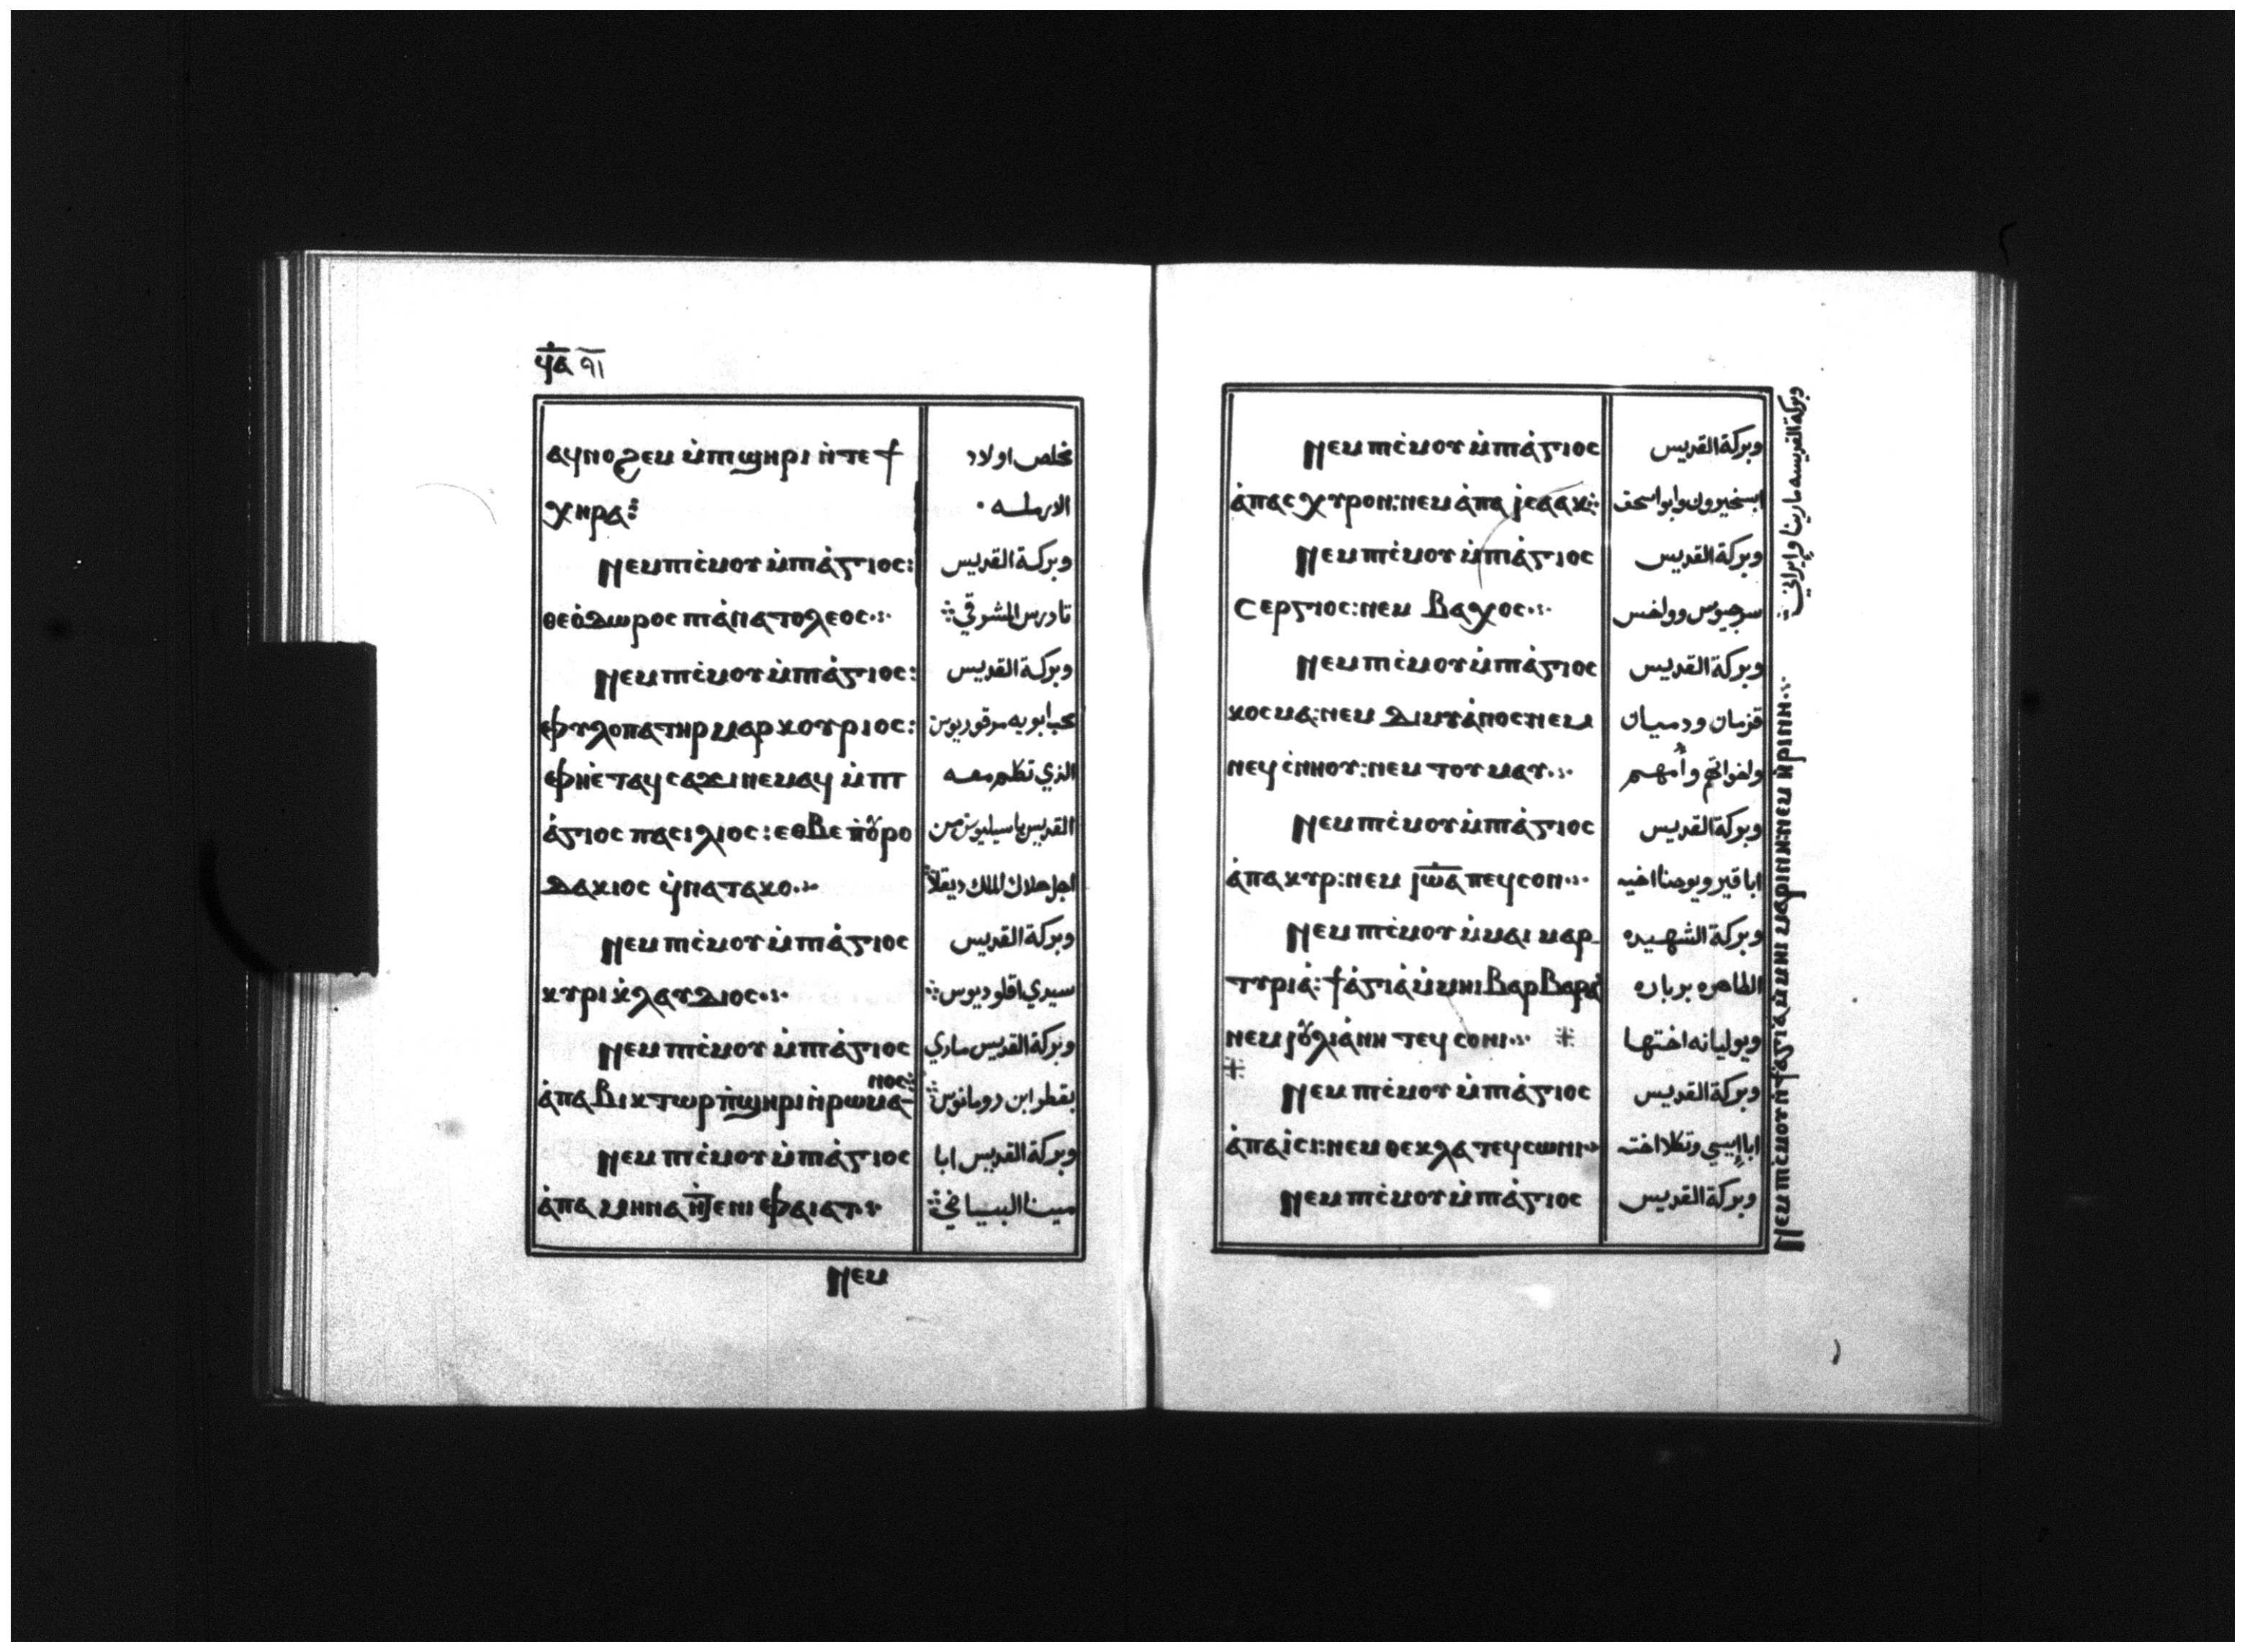 ϥ̅ⲁ̅ ٩١
ⲁϥⲛⲟϩⲉⲙ ⲙ̇ⲡϣⲏⲣⲓ ⲛ̇ⲧⲉϯ مخلص اولاد
ⲭⲏⲣⲁ⁘ الارمله ·
Ⲛⲉⲙ ⲡⲓⲥ̇ⲙⲟⲩ ⲙ̇ⲡⲓⲁ̇ⲅⲓⲟⲥ: وبركة القديس
ⲑⲉⲟ̇ⲇⲱⲣⲟⲥ ⲡⲓⲁ̇ⲛⲁⲧⲟⲗⲉⲟⲥ⁘ تادرس المشرقي⁘
Ⲛⲉⲙ ⲡⲓⲥ̇ⲙⲟⲩ ⲙ̇ⲡⲓⲁ̇ⲅⲓⲟⲥ: وبركة القديس
ⲫⲩⲗⲟⲡⲁⲧⲏⲣ ⲙⲁⲣⲕⲟⲩⲣⲓⲟⲥ: محب ابويه مرقوريوس
ⲫⲏⲉ̇ⲧⲁϥⲥⲁϫⲓ ⲛⲉⲙⲁϥ ⲙ̇ⲡⲓ الذي تكلم معه
ⲁ̇ⲅⲓⲟⲥ ⲡⲁⲥⲓⲗⲓⲟⲥ: ⲉⲑⲃⲉ ⲡ̇ⲟⲩⲣⲟ القديس باسيليوس من
ⲇⲁⲕⲓⲟⲥ ϥ̇ⲛⲁⲧⲁⲕⲟ⁘ اجل هلاك الملك
Ⲛⲉⲙ ⲡⲓⲥ̇ⲙⲟⲩ ⲙ̇ⲡⲓⲁ̇ⲅⲓⲟⲥ وبركة القديس
ⲕⲩⲣⲓ ⲕ̇ⲗⲁⲩⲇⲓⲟⲥ⁘ سيدي اقلوديوس⁘
Ⲛⲉⲙ ⲡⲓⲥ̇ⲙⲟⲩ ⲙ̇ⲡⲓⲁ̇ⲅⲓⲟⲥ وبركة القديس ماري
ⲁ̇ⲡⲁ ⲃⲓⲕⲧⲱⲣ ⲡ̇ϣⲏⲣⲓ ⲛ̇ⲣⲱⲙⲁⲛⲟⲥ⁘ بقطر ابن رومانوس⁘
Ⲛⲉⲙ ⲡⲓⲥ̇ⲙⲟⲩ ⲙ̇ⲡⲓⲁ̇ⲅⲓⲟⲥ وبركة القديس ابا
ⲁ̇ⲡⲁ ⲙⲏⲛⲁ ⲛ̇ⲧⲉ ⲛⲓⲫⲁⲓⲁⲧ⁘ مينا البيياضي⁘
Ⲛⲉⲙ
Ⲛⲉⲙ ⲡⲓⲥ̇ⲙⲟⲩ ⲙ̇ⲡⲓⲁ̇ⲅⲓⲟⲥ وبركة القديس
ⲁ̇ⲡⲁ ⲥⲭⲩⲣⲟⲛ: ⲛⲉⲙ ⲁ̇ⲡⲁ ⲓⲥⲁⲁⲕ⁘ ابسخيرون وابو اسحق
Ⲛⲉⲙ ⲡⲓⲥ̇ⲙⲟⲩ ⲙ̇ⲡⲓⲁ̇ⲅⲓⲟⲥ وبركة القديس
Ⲥⲉⲣⲅⲓⲟⲥ: ⲛⲉⲙ Ⲃⲁⲭⲟⲥ⁘ سرجيوس وواخس
Ⲛⲉⲙ ⲡⲓⲥ̇ⲙⲟⲩ ⲙ̇ⲡⲓⲁ̇ⲅⲓⲟⲥ وبركة القديس
ⲕⲟⲥⲙⲁ: ⲛⲉⲙ ⲇⲓⲙⲩⲁ̇ⲛⲟⲥ ⲛⲉⲙ قزمان ودميان
ⲛⲉϥⲥ̇ⲛⲏⲟⲩ: ⲛⲉⲙ ⲧⲟⲩⲙⲁⲩ⁘ واخواتهم وأمهم
Ⲛⲉⲙ ⲡⲓⲥ̇ⲙⲟⲩ ⲙ̇ⲡⲓⲁ̇ⲅⲓⲟⲥ وبركة القديس
ⲁ̇ⲡⲁⲕⲩⲣ: ⲛⲉⲙ ⲓⲱ̅ⲁ̅ ⲡⲉϥⲥⲟⲛ⁘ اباقير ويوحنا اخيه
Ⲛⲉⲙ ⲡⲓⲥ̇ⲙⲟⲩ ⲙ̇ⲙⲁⲓ ⲙⲁⲣ- وبركة الشهيده
ⲧⲩⲣⲓⲁ̇: ϯⲁ̇ⲅⲓⲁ̇ ⲙ̇ⲙⲏⲓ ⲂⲁⲣⲂⲁⲣⲁ̇ الطاهره برباره
ⲛⲉⲙ ⲓⲟⲩⲗⲓⲁ̇ⲛⲏ ⲧⲉϥⲥⲟⲛⲓ⁘ ⁜ ويوليانه اختها
⁜
Ⲛⲉⲙ ⲡⲓⲥ̇ⲙⲟⲩ ⲙ̇ⲡⲓⲁ̇ⲅⲓⲟⲥ وبركة القديس
ⲁ̇ⲡⲁ ⲓⲥⲓ: ⲛⲉⲙ ⲑⲉⲕⲗⲁ ⲧⲉϥⲥⲱⲛⲓ⁘ ابا إيسي وتكلا اخته
Ⲛⲉⲙ ⲡⲓⲥ̇ⲙⲟⲩ ⲙ̇ⲡⲓⲁ̇ⲅⲓⲟⲥ وبركة القديس
Ⲛⲉⲙ ⲡⲓⲥ̇ⲙⲟⲩ ⲛ̇ϯⲁ̇ⲅⲓⲁ̇ ⲙ̇ⲙⲏⲓ ⲙⲁⲣⲓⲛⲏ: ⲛⲉⲙ ⲏⲣⲓⲛⲏ⁘ وبركة القديسه مارينا وإيراني⁘